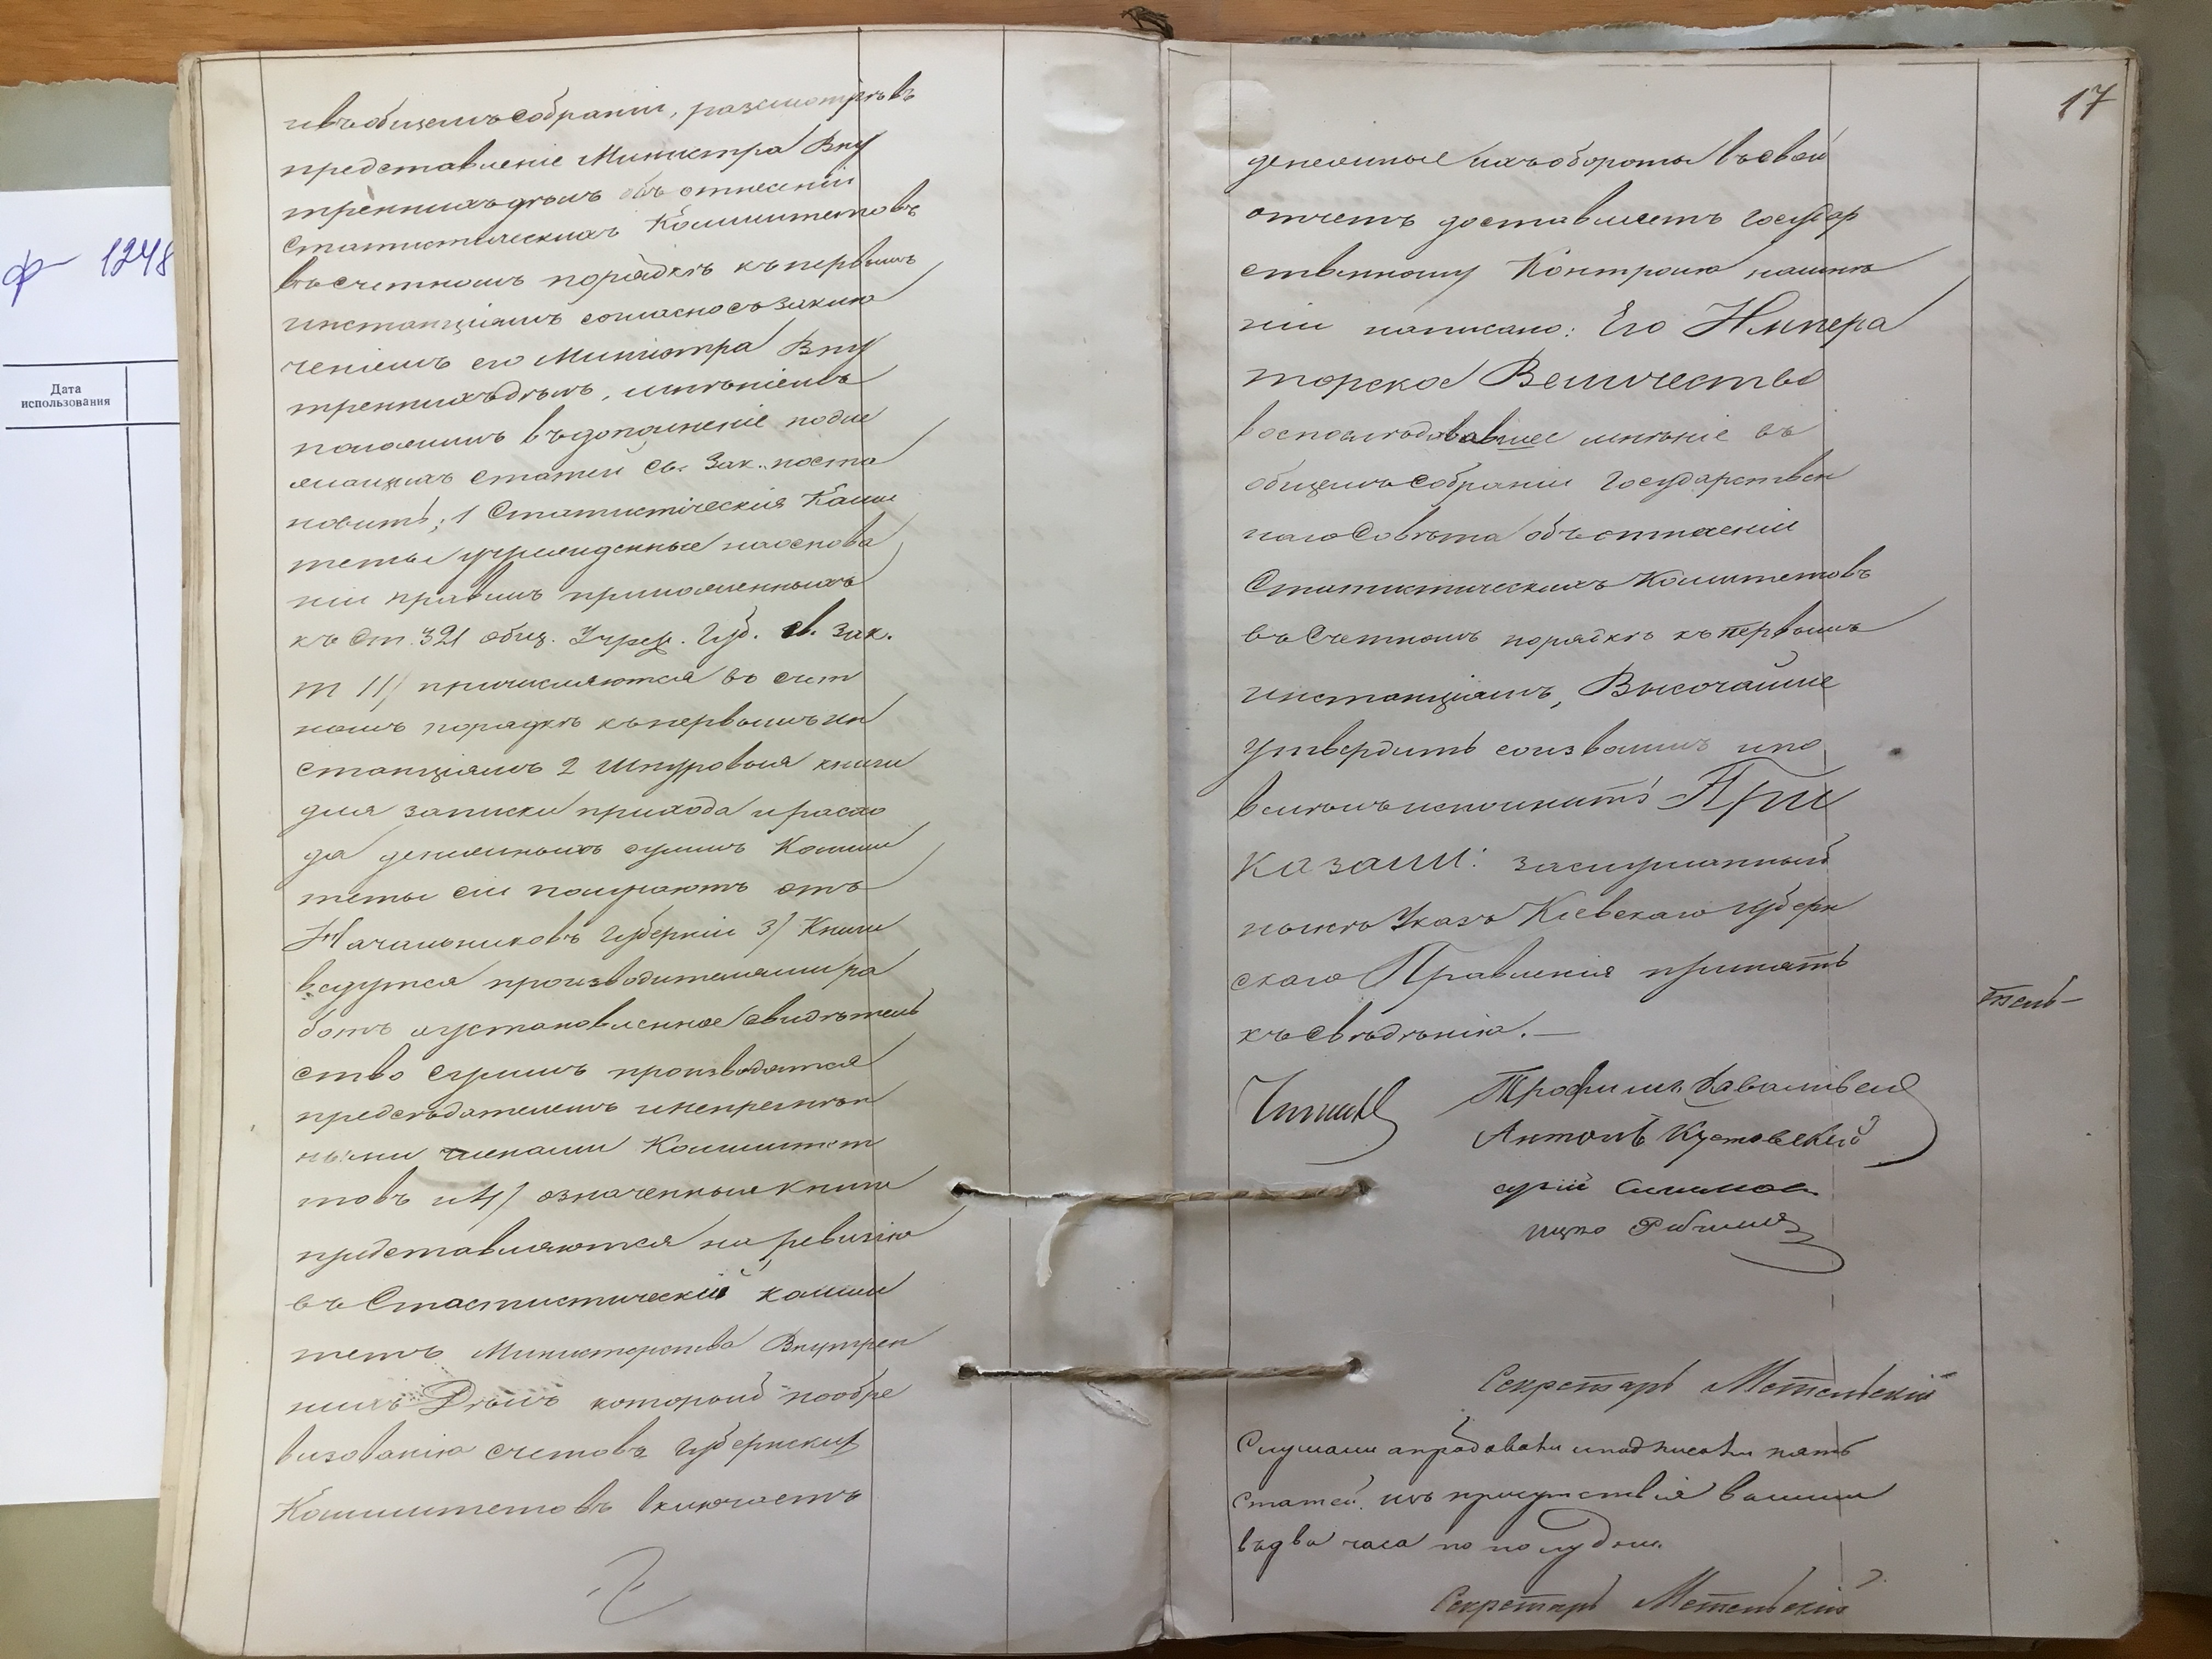 ф 1248
Дата
использования
и въ общемъ собраніи, разсмотрѣвъ
представленіе Министра Вну
треннихъ дѣлъ объ отнесеніи
Статистическихъ Коммитетовъ
въ счетномъ порядкѣ къ первымъ
инстанціямъ согласно съ заклю
ченіемъ его Министра Вну
треннихъ дѣлъ, мнѣніемъ
положилъ въ дополненіе подле
жащихъ статей Св. Зак. поста
новить; 1 Статистическія Коми
теты учрежденные на основа
ніи правилъ приложенныхъ
къ Ст. 321 общ. Учреж. Губ. св. Зак.
т II/ причисляются въ счет
номъ порядкѣ къ первымъ ин
станціямъ 2 Шнуровыя книги
для записки прихода и расхо
да денежныхъ суммъ Комми
теты сіи получаютъ отъ
Начальниковъ Губерніи 3/ Книги
ведутся производителями ра
ботъ а установленное свидѣтель
ство суммъ производятся
предсѣдателемъ и непремѣн
ными членами Коммитет
товъ и 4/ означенныя книги
представляются на ревизію
въ Стастистическій комми
тетъ Министерства Внутрен
нихъ Дѣлъ который по обре
визованію счетовъ Губернских
Коммитетовъ включаетъ
17
денежные ихъ обороты въ свой
отчетъ доставляетъ Государ
ственному Контролю на мнѣ
ніи написано: Его Импера
торское Величество
воспослѣдовавшее мнѣніе въ
общемъ собраніи Государствен
наго Совѣта объ отнесеніи
Статиктическихъ Комитетовъ
въ Счетномъ порядкѣ къ первымъ
инстанціямъ, Высочайше
утвердить соизволилъ и по
велѣлъ исполнить При
казали: заслушанный
Указъ Кіевскаго Губерн
скаго Правленія принять
къ свѣдѣнію. —
Трофимъ
Антонъ Кустовскій
Секретарь Метельскій
Слушали апробовали и подписали пять
статей. изъ присутствія вышли
въ два часа по полудни.
Секретарь Метельскій